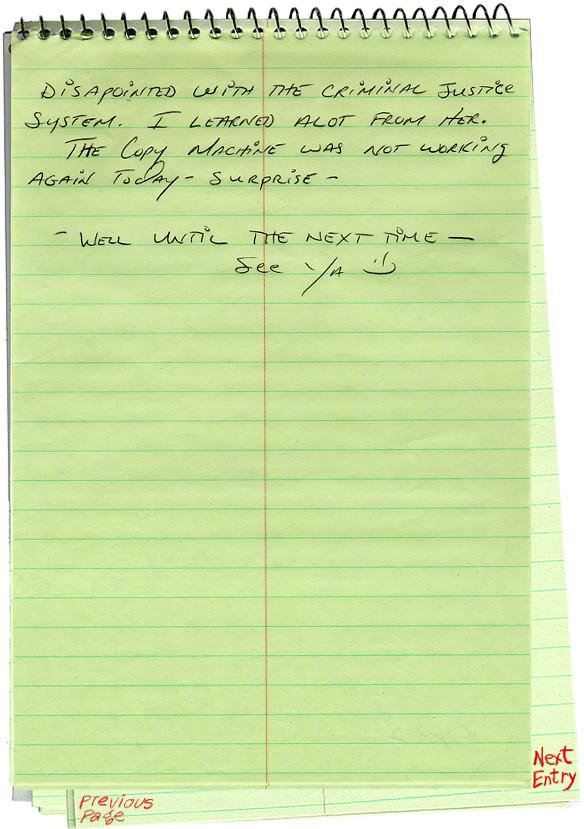 DISAPOINTED WITH THE CRIMINAL JUSTICE
SYSTEM. I LEARNED ALOT FROM HER.
THE COPY MACHINE WAS NOT WORKING
AGAIN TODAY - SURPRISE -
- WELL UNTIL THE NEXT TIME —
See YA
Next
Entry
Previous
Page